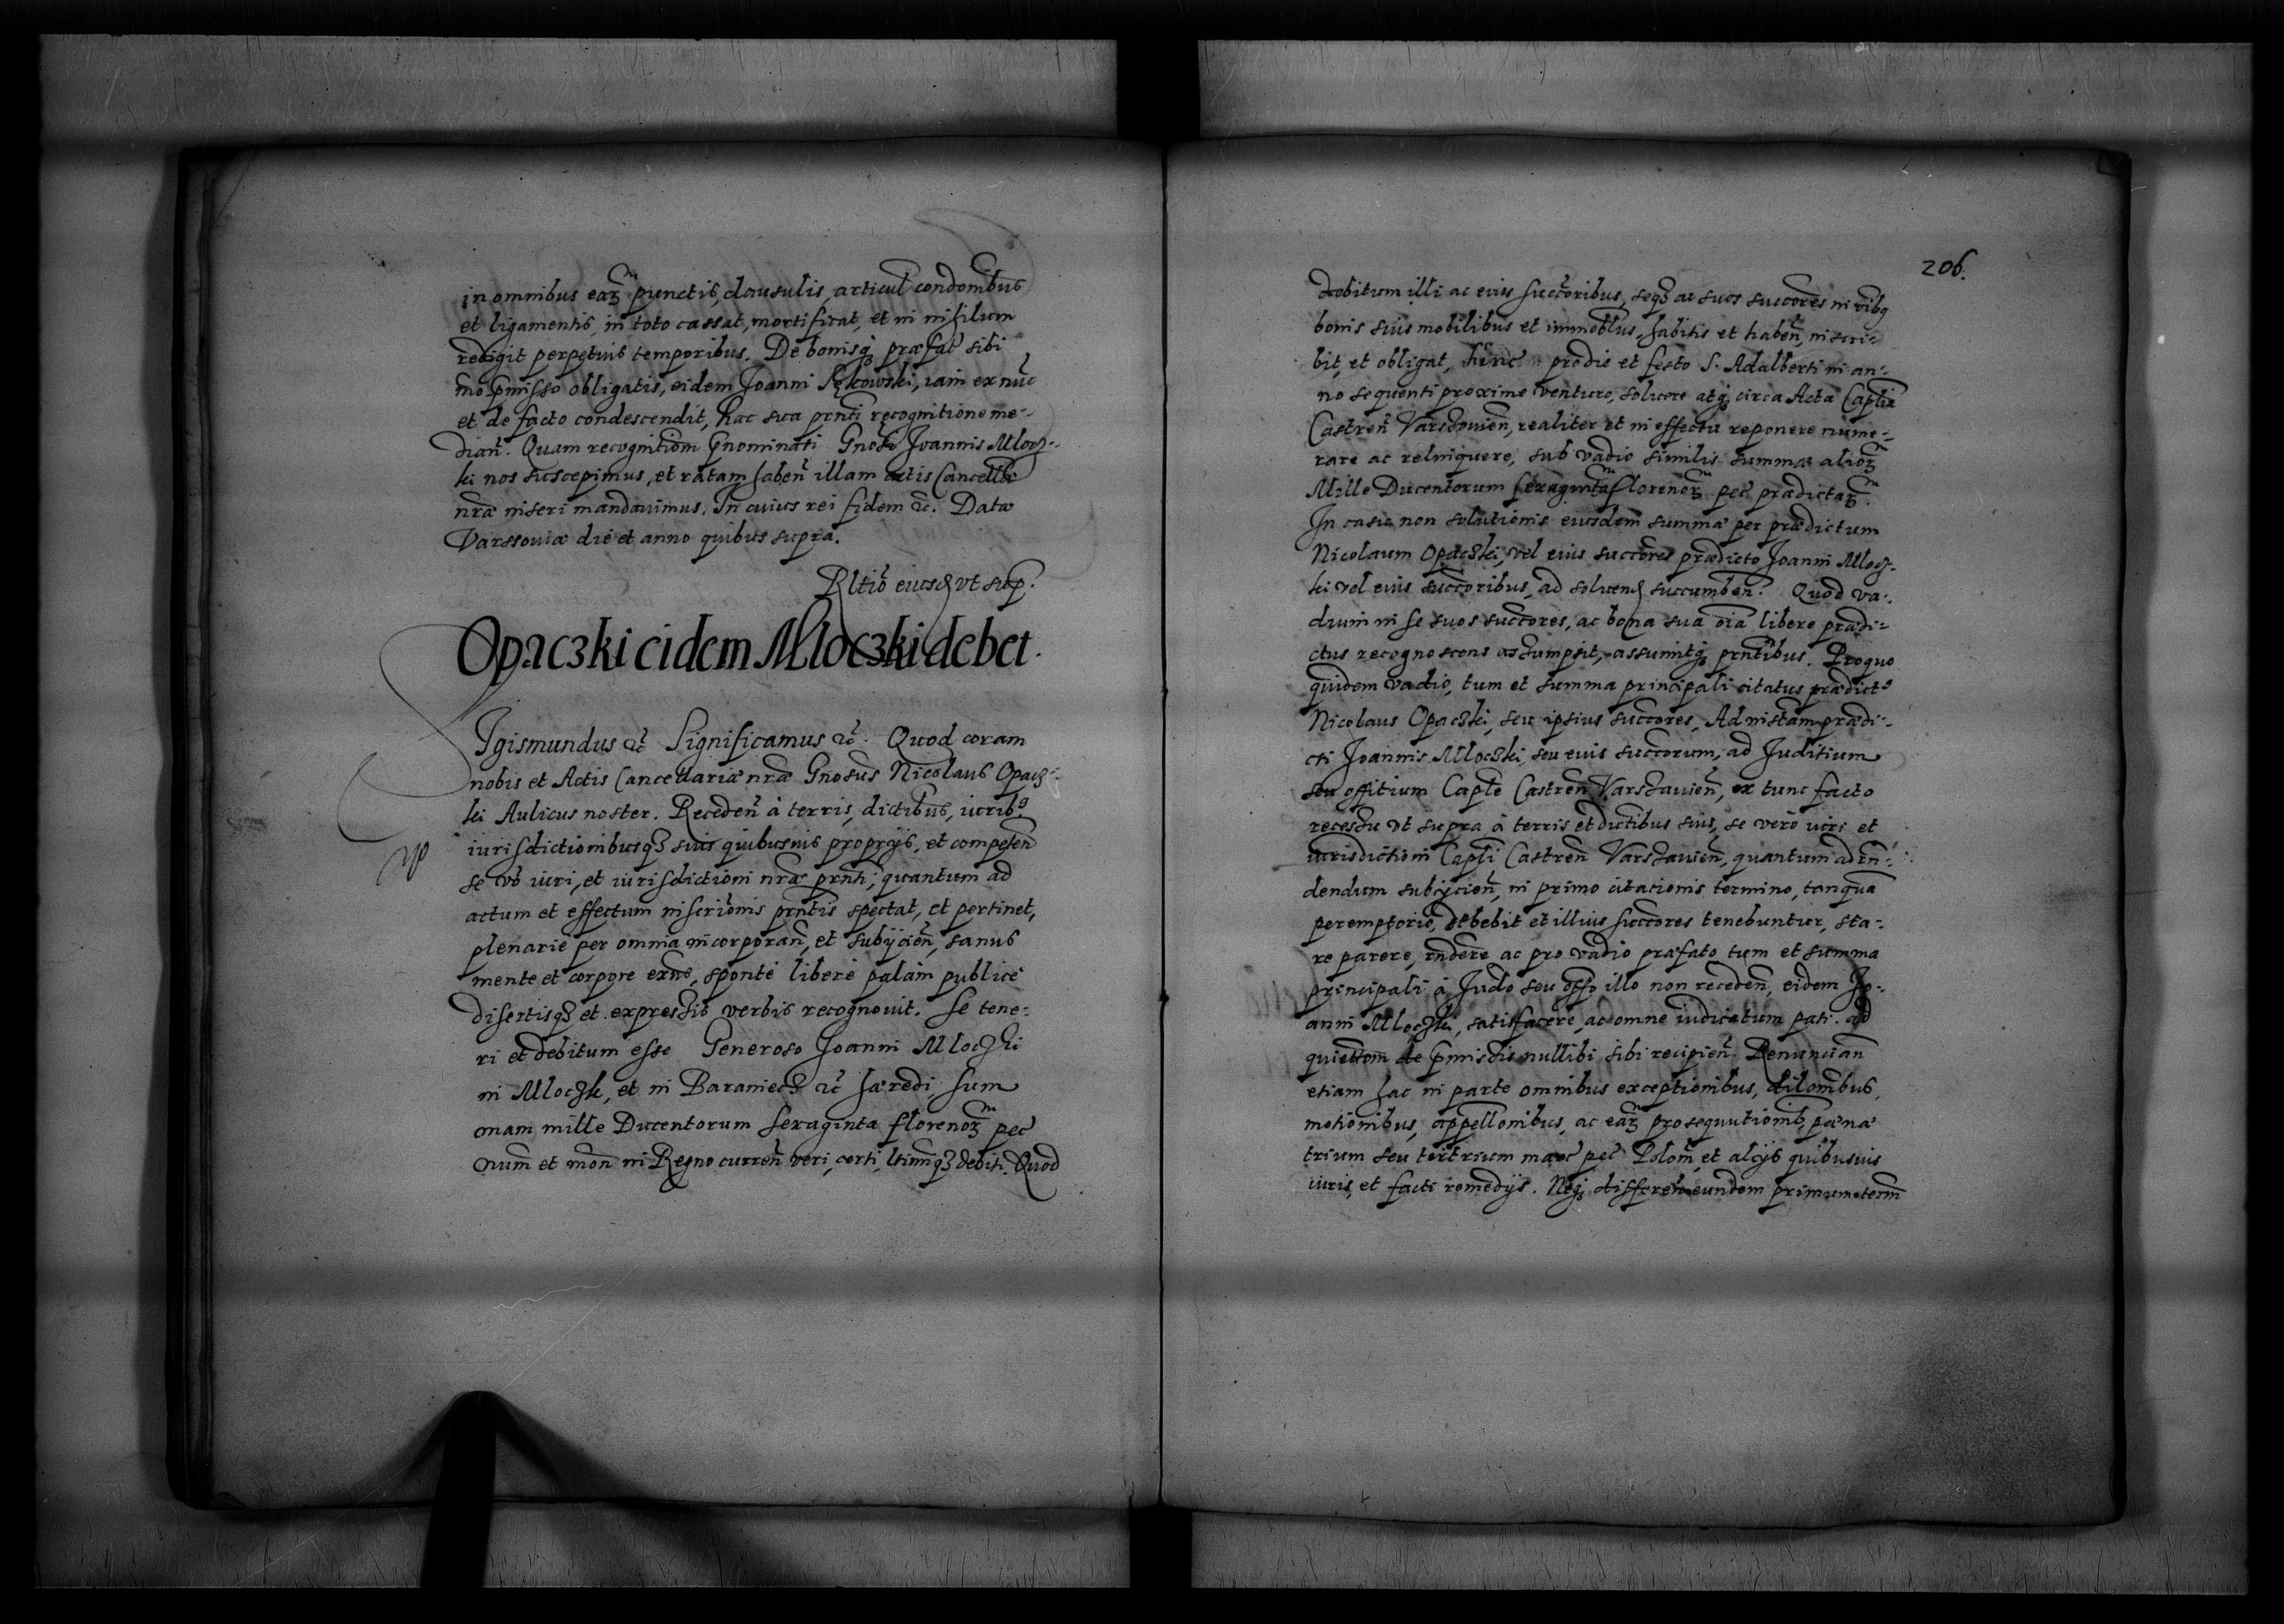 in omnibus eaꝝ punctis, clausulis, articul̃ condõnibus
et ligamentis, in toto cassat, mortificat, et in nihilum
redigit perpetuis temporibus. De bonisq́ꝫ præfat̃ sibi
mõ p̃misso obligatis, eidem Joanni iam ex nũc
et de facto condescendit, hac sua prñti recognitione me-
diañ. Quam recognitiom p̃nominati Gnosi Joannis Mlocz-
ki nos suscepimus, et ratam habeñ illam actis Cancellæ
nr̃æ inseri mandauimus. In cuius rei fidem ꝛc̃. Datæ
Varssouiæ die et anno quibus supra.
Rltio eiusd vt sup.
Opaczki eidem Mloczki debet.
Sigismundus ꝛc̃ Significamus ꝛc̃. Quod coram
nobis et Actis Cancellariæ nr̃æ Gnosus Nicolaus Opacz-
ki Aulicus noster. Recedeñ à terris, dictibus, iurib9
iurisdictionibusqꝫ suis quibusuis proprijs, et competeñ
se vo iuri, et iurisdictioni nr̃æ prñti, quantum ad
actum et effectum inscriõnis prñtis spectat, et pertinet,
plenarie per omnia incorporañ, et subijcieñ, sanus
mente et corpore exñs, sponte libere palam publice
disertisqꝫ et expressis verbis recognouit. Se tene-
ri et debitum esse Generoso Joanni Mloczki
in Mloczk, et in Baraniecz ꝛc̃ hæredi, sum
mam mille Ducentorum sexaginta florenoꝝ pec̃
num et moñ in Regno curreñ veri, certi, ltimiqꝫ debiti. Quod
206.
debitum illi ac eius succoribus, seqꝫ ac suos succores in oibq
bonis suis mobilibus et immoblus, habitis et habeñ, inscri-
bit, et obligat, hinc prodie et festo S. Adalberti in an-
no sequenti proxime venturo, soluere atqꝫ circa Acta Captlia
Castreñ Varszouieñ, realiter et in effectu reponere nume-
rare ac relinquere, sub vadio similis summæ alioꝝ
Mille Ducentorum sexaginta florenoꝝ pec̃ prædictaꝝ.
In casu non solutionis eiusdem summæ per prædictum
Nicolaum Opaczki, vel eius succores prædicto Joanni Mlocz-
ki vel eius succoribus, ad soluend succumbeñ. Quod va-
dium in se suos succores, ac bona sua oia libere prædi-
ctus recognoscens assumpsit, assumitqꝫ prñtibus. Pro quo
quidem vadio, tum et summa principali citatus prædict9
Nicolaus Opaczki, seu ipsius succores, Ad instam prædi-
cti Joannis Mloczki, seu euis succorum, ad Juditium
seu offitium Captle Castreñ Varszauieñ, ex tunc facto
recessu vt supra à terris et dictibus suis, se vero iuri et
iurisdictioni Captli Castreñ Varszauieñ, quantum ad rñ-
dendum subijcieñ, in primo citationis termino, tanqua
peremptorie, debebit et illius succores tenebuntur, sta-
re parere, rñdere ac pro vadio præfato tum et summa
principali à Judo seu offo illo non recedeñ, eidem Jo-
anni Mloczki, satisfacere, ac omne iudicatum pati. ad
quietiom de p̃missis nullibi sibi recipieñ. Renuncian
etiam hac in parte omnibus exceptionibus, dilombus,
motionibus, appellonibus, ac eaꝝ prosequutionib, pæna
trium seu tert trium marc̃ pec̃ Poloñ, et alijs quibusuis
iuris, et facti remedijs. Neqꝫ differeñ eundem primum term